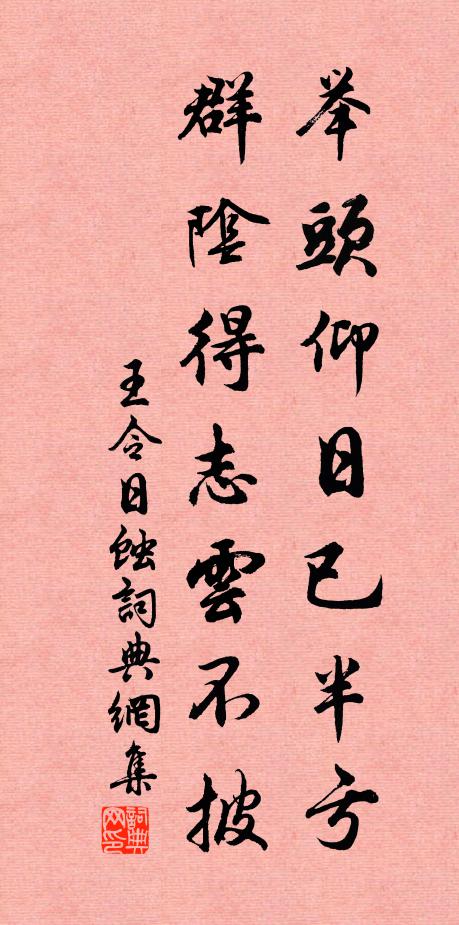 举頭仰日已半亏
群陰得志雲不披
王令日蝕詞典網集
詞典网印